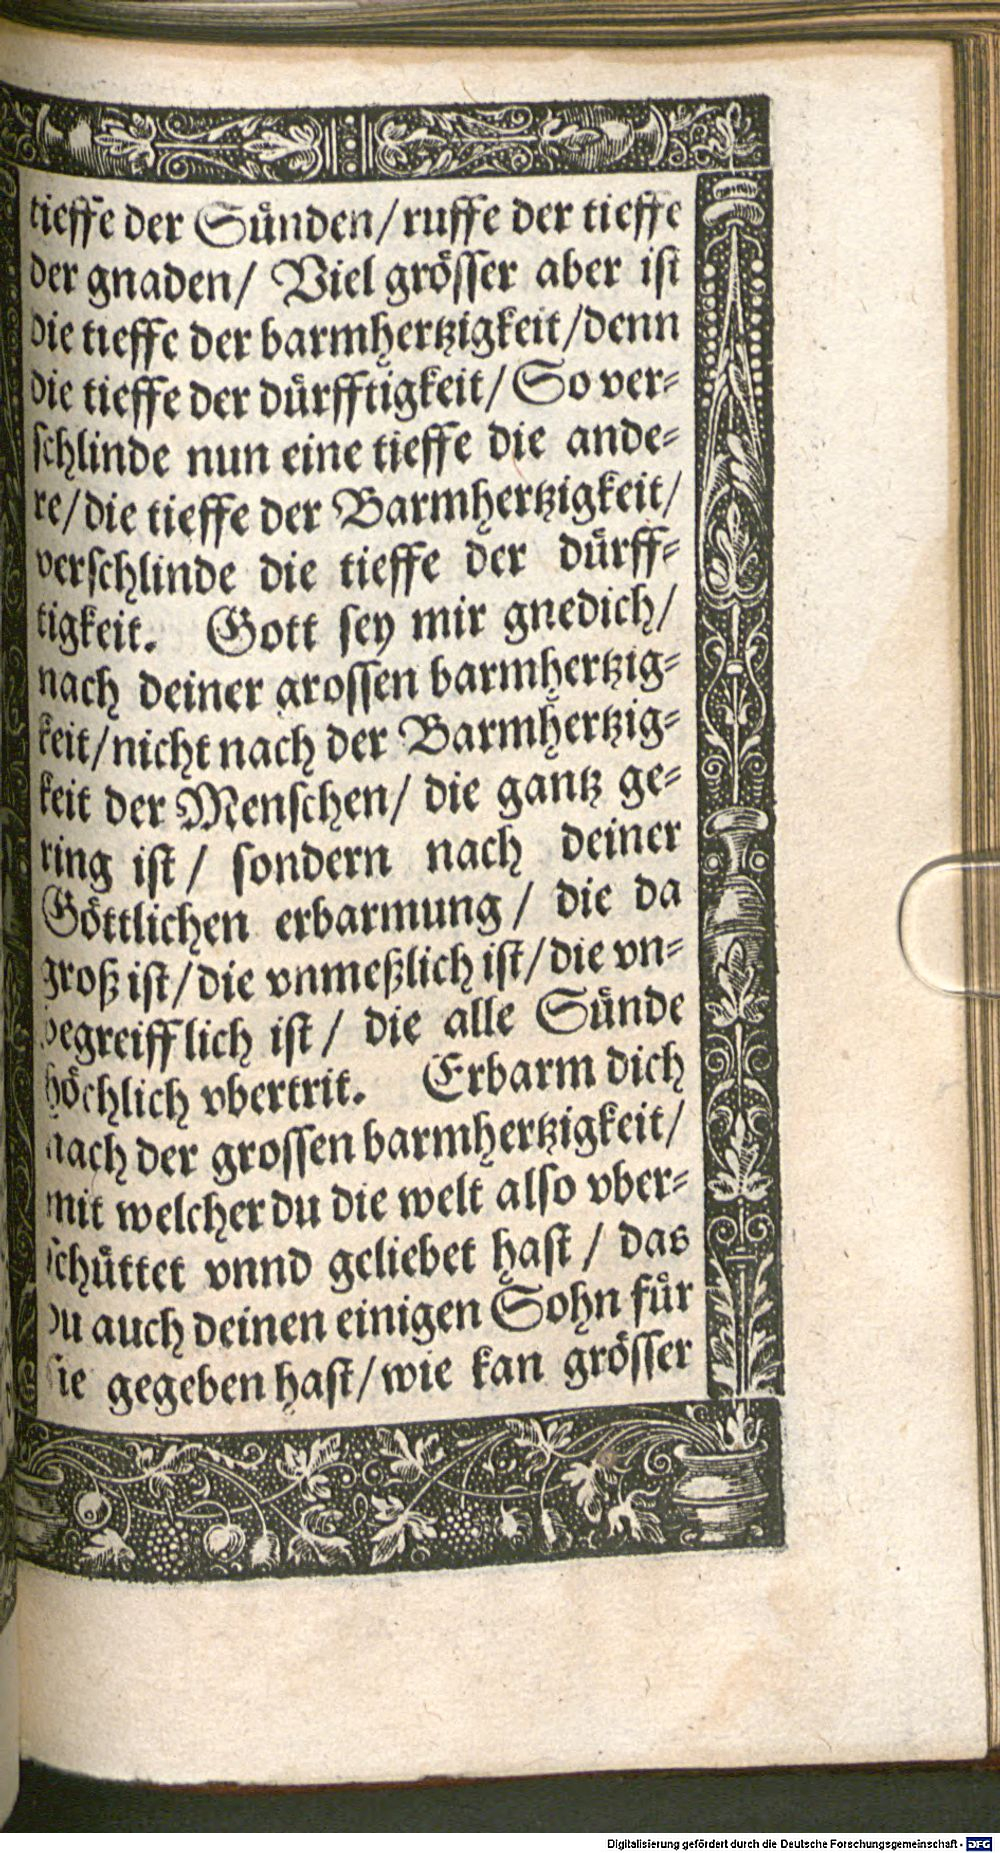 tieffe der Sünden/ruffe der tieffe
der gnaden/ Viel grösser aber ist
die tieffe der barmhertzigkeit/denn
die tieffe der dürfftigkeit/So ver-
schlinde nun eine tieffe die ande-
re/die tieffe der Barmhertzigkeit/
verschlinde die tieffe der dürff-
tigkeit. Gott sey mir gnedich/
nach deiner grossen barmhertzig-
keit/nicht nach der Barmhertzig-
keit der Menschen/ die gantz ge-
ring ist/ sondern nach deiner
Göttlichen erbarmung/ die da
groß ist/die vnmeßlich ist/die vn-
begreifflich ist/ die alle Sünde
höchlich vbertrit. Erbarm dich
nach der grossen barmhertzigkeit/
mit welcher du die welt also vber-
schüttet vnnd geliebet hast/ das
du auch deinen einigen Sohn für
sie gegeben hast/wie kan grösser
Digitalisierung gefördert durch die Deutsche Forschungsgemeinschaft - DFG